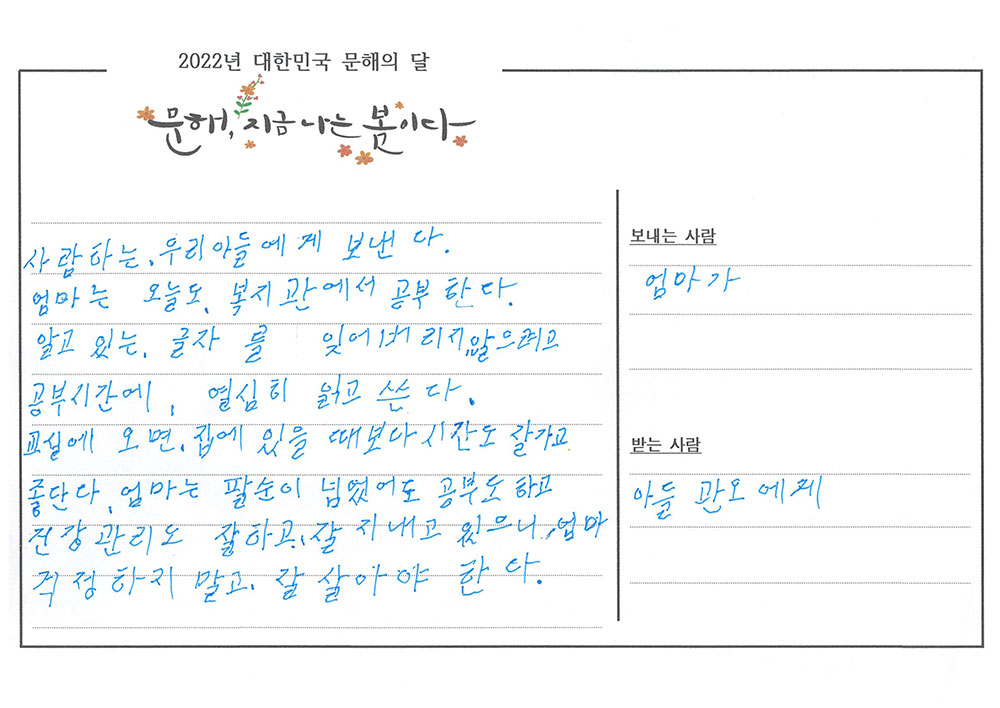 2022년 대한민국 문해의 달
문해, 지금 나는 봄이다
사람하는, 우리아들에게 보낸다.
엄마는 오늘도, 복지관에서 공부한다.
알고 있는, 글자를 잊어버리서않으려고
공부시간에, 열심히 읽고 쓴다.
교실에 오면, 집에 있을 때보다 시간도 잘가고
좋단다, 엄마는 팔순이 넘었어도 공부도하고
건강관리도 잘하고, 잘 지내고 있으니, 엄마
걱정하지 말고, 잘 살아야 한다.
보내는 사람
엄마가
받는 사람
아들 관오에게